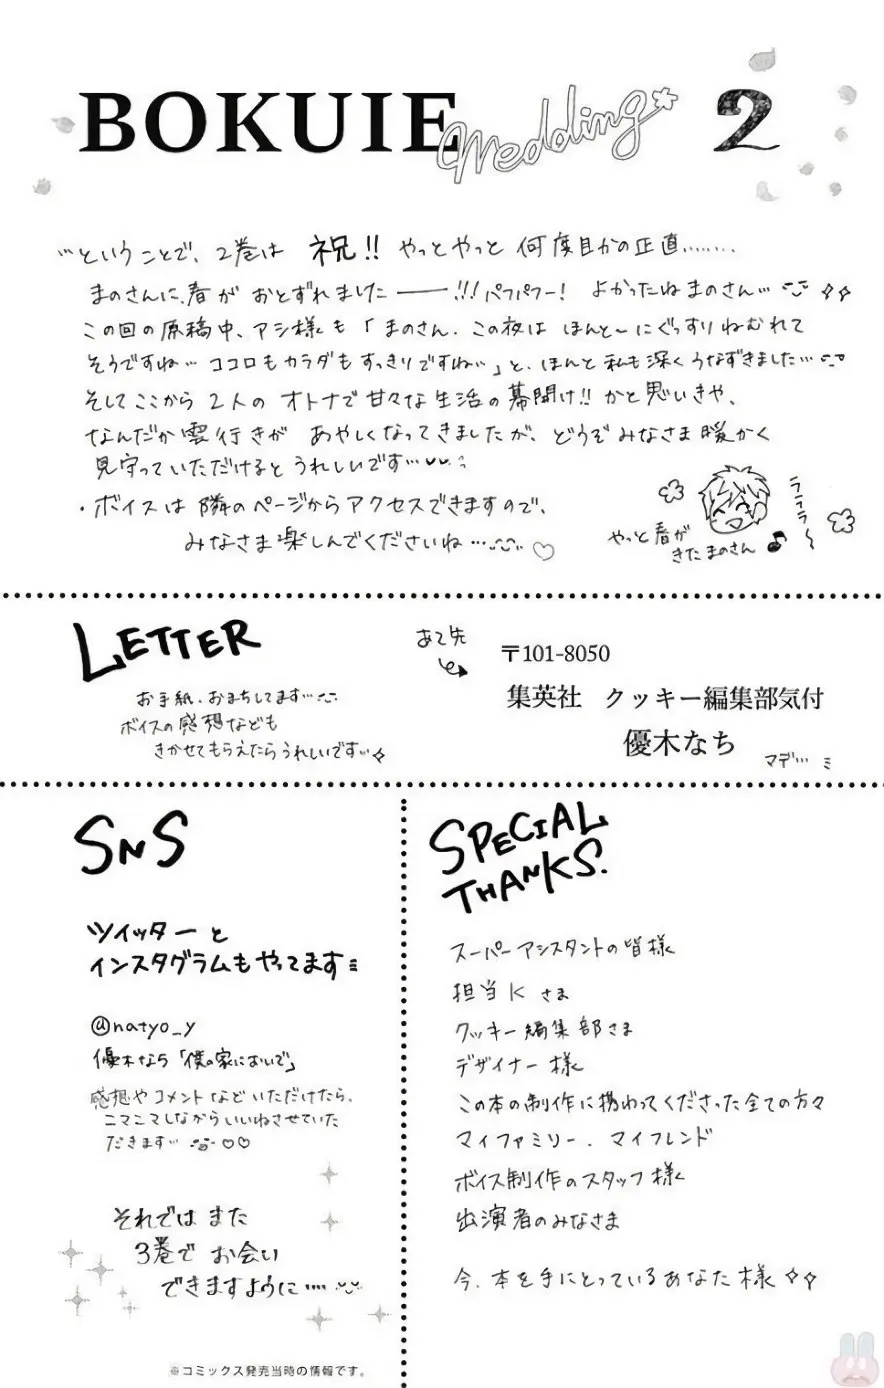 BOKUIE Wedding 2
…ということで、2巻は 祝!! やっとやっと 何度目かの正直……
まのさんに春が おとずれました――!!! パフパフー! よかったねまのさん…
この回の原稿中、アシ様も「まのさん、この夜は ほんと〜にぐっすりねむれて
そうですね… ココロもカラダもすっきりですね…」と、ほんと私も深くうなずきました…
そしてここから 2人の オトナで甘々な生活の幕開け!! かと思いきや、
なんだか雲行きが あやしくなってきましたが、どうぞみなさま暖かく
見守っていただけるとうれしいです…
・ボイスは隣のページからアクセスできますので、
みなさま楽しんでくださいね…♡
ラララ〜
やっと春が
きたまのさん♪
LETTER
お手紙、おまちしてます…
ボイスの感想なども
きかせてもらえたらうれしいです…
あて先
〒101-8050
集英社 クッキー編集部気付
優木なち
マデ…
SNS
ツイッターと
インスタグラムもやってます
@natyo_y
優木なち「僕の家においで」
感想やコメントなどいただけたら、
ニマニマしながらいいねさせていた
だきます…♡♡
それではまた
3巻でお会い
できますように…
※コミックス発売当時の情報です。
SPECIAL
THANKS.
スーパーアシスタントの皆様
担当K さま
クッキー編集部さま
デザイナー様
この本の制作に携わってくださった全ての方々
マイファミリー、マイフレンド
ボイス制作のスタッフ様
出演者のみなさま
今、本を手にとっているあなた様